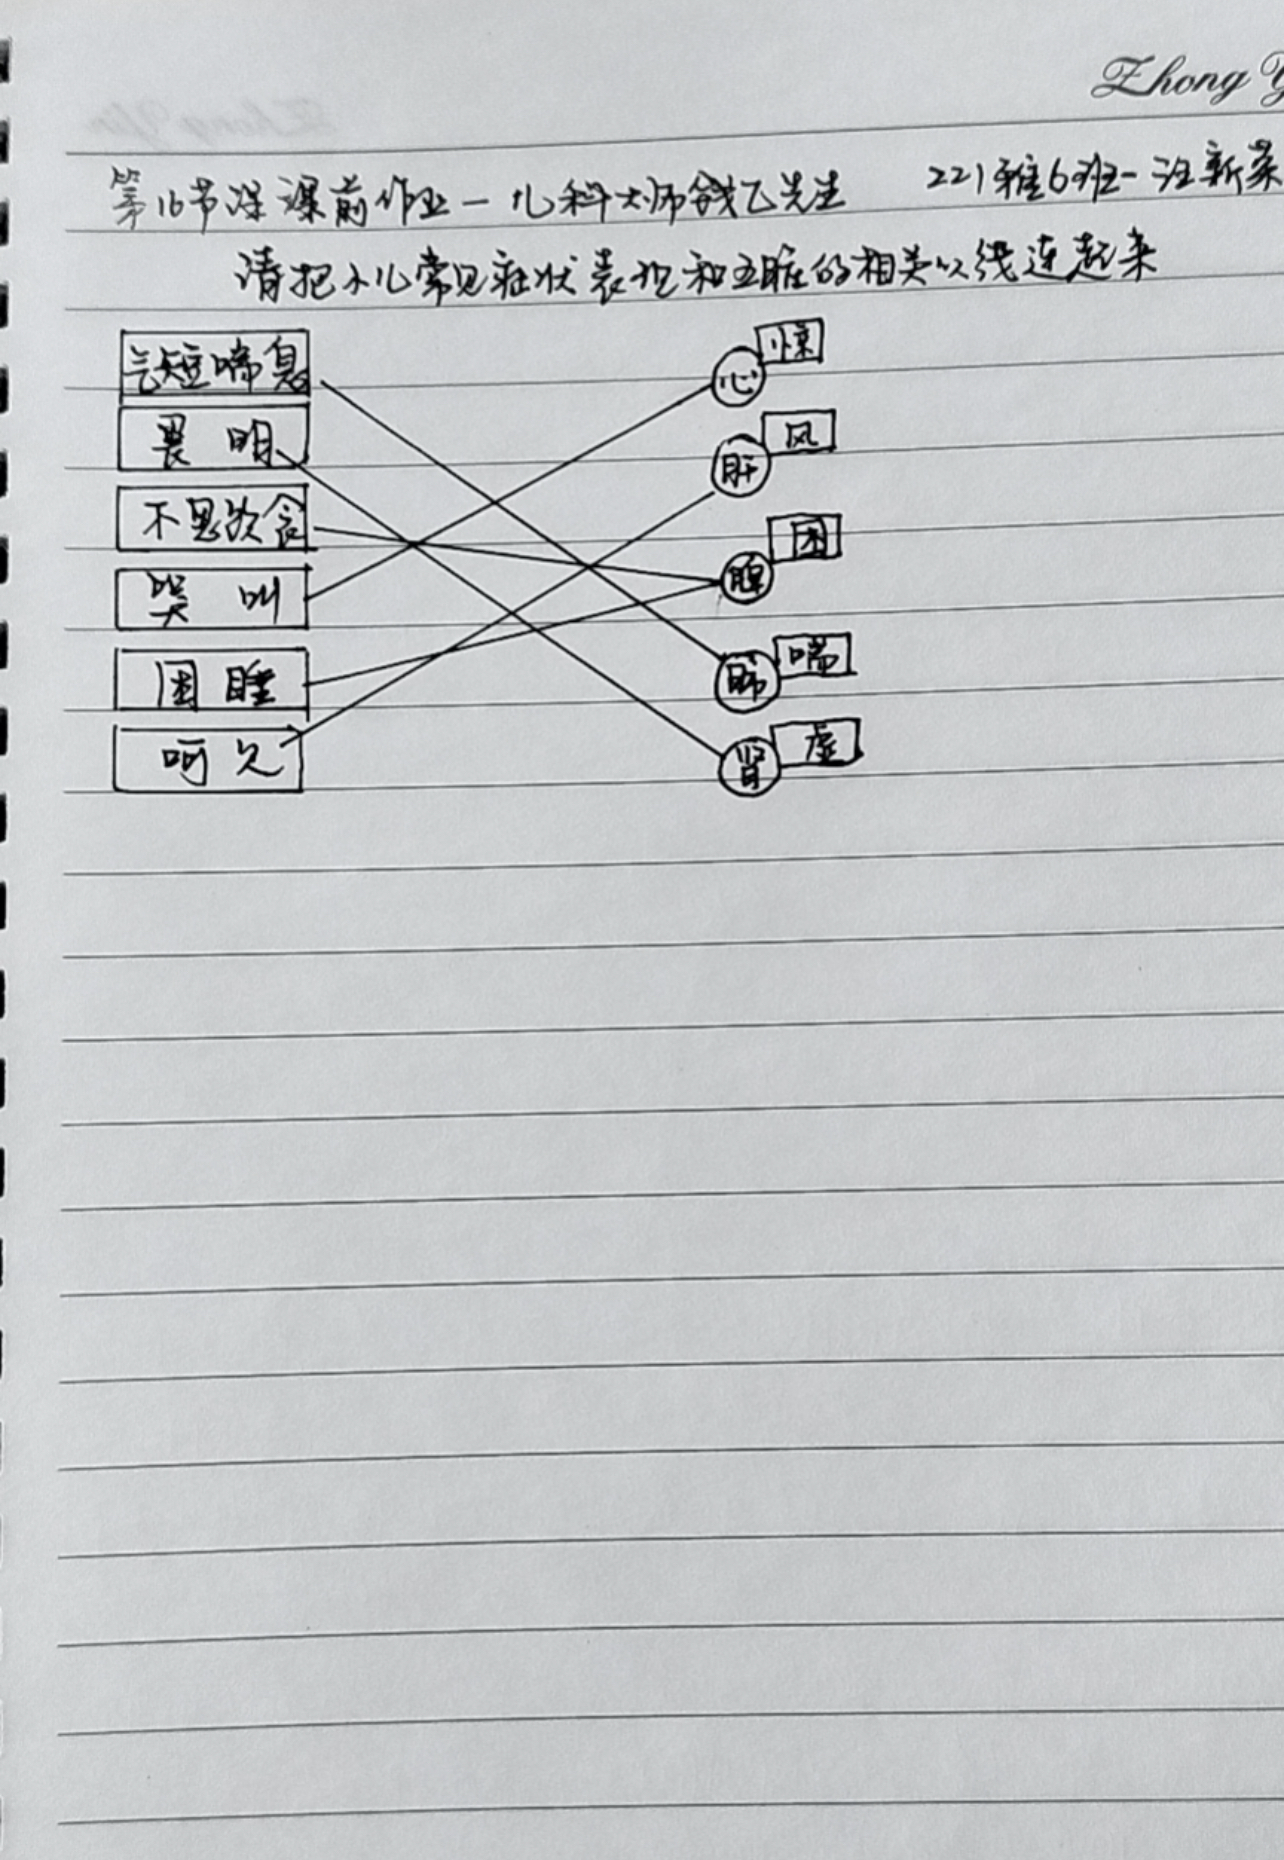 Zhong Y
第16节深课前作业－儿科大师钱乙先生 221雅6班－汪新菜
请把小儿常见症状表现和五脏的相关以线连起来
气短喘息
畏明
不思饮食
哭叫
困睡
呵欠
心 惊
肝 风
脾 困
肺 喘
肾 虚